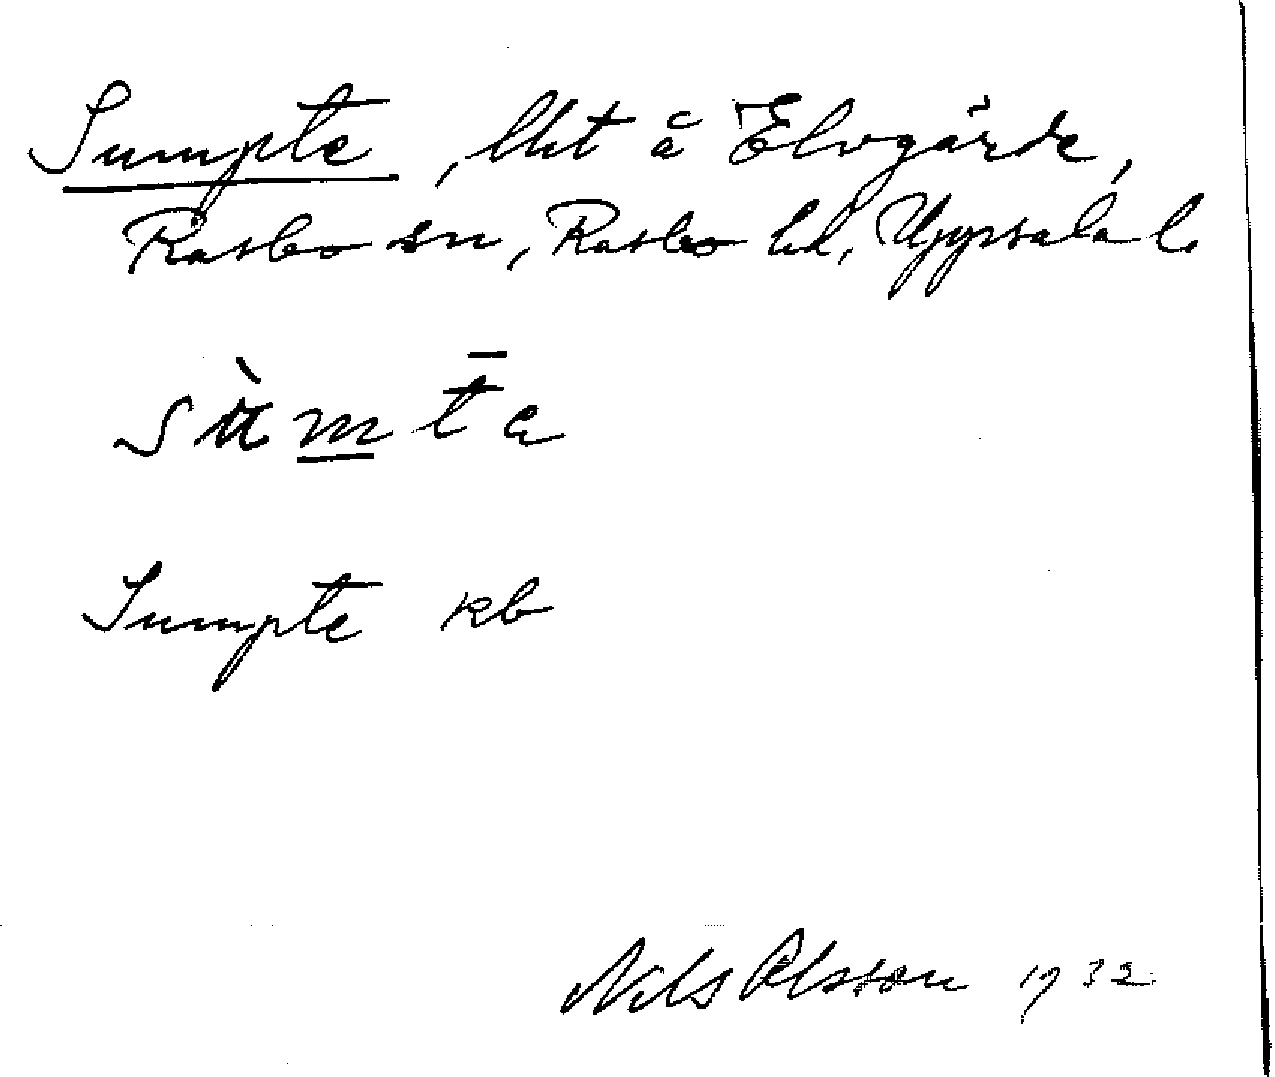 Sumpte, lht å Elvgärde,
Rasbo sn, Rasbo hd, Uppsala l.
sùmt̄a
Sumpte kb
Nils Olsson 1932